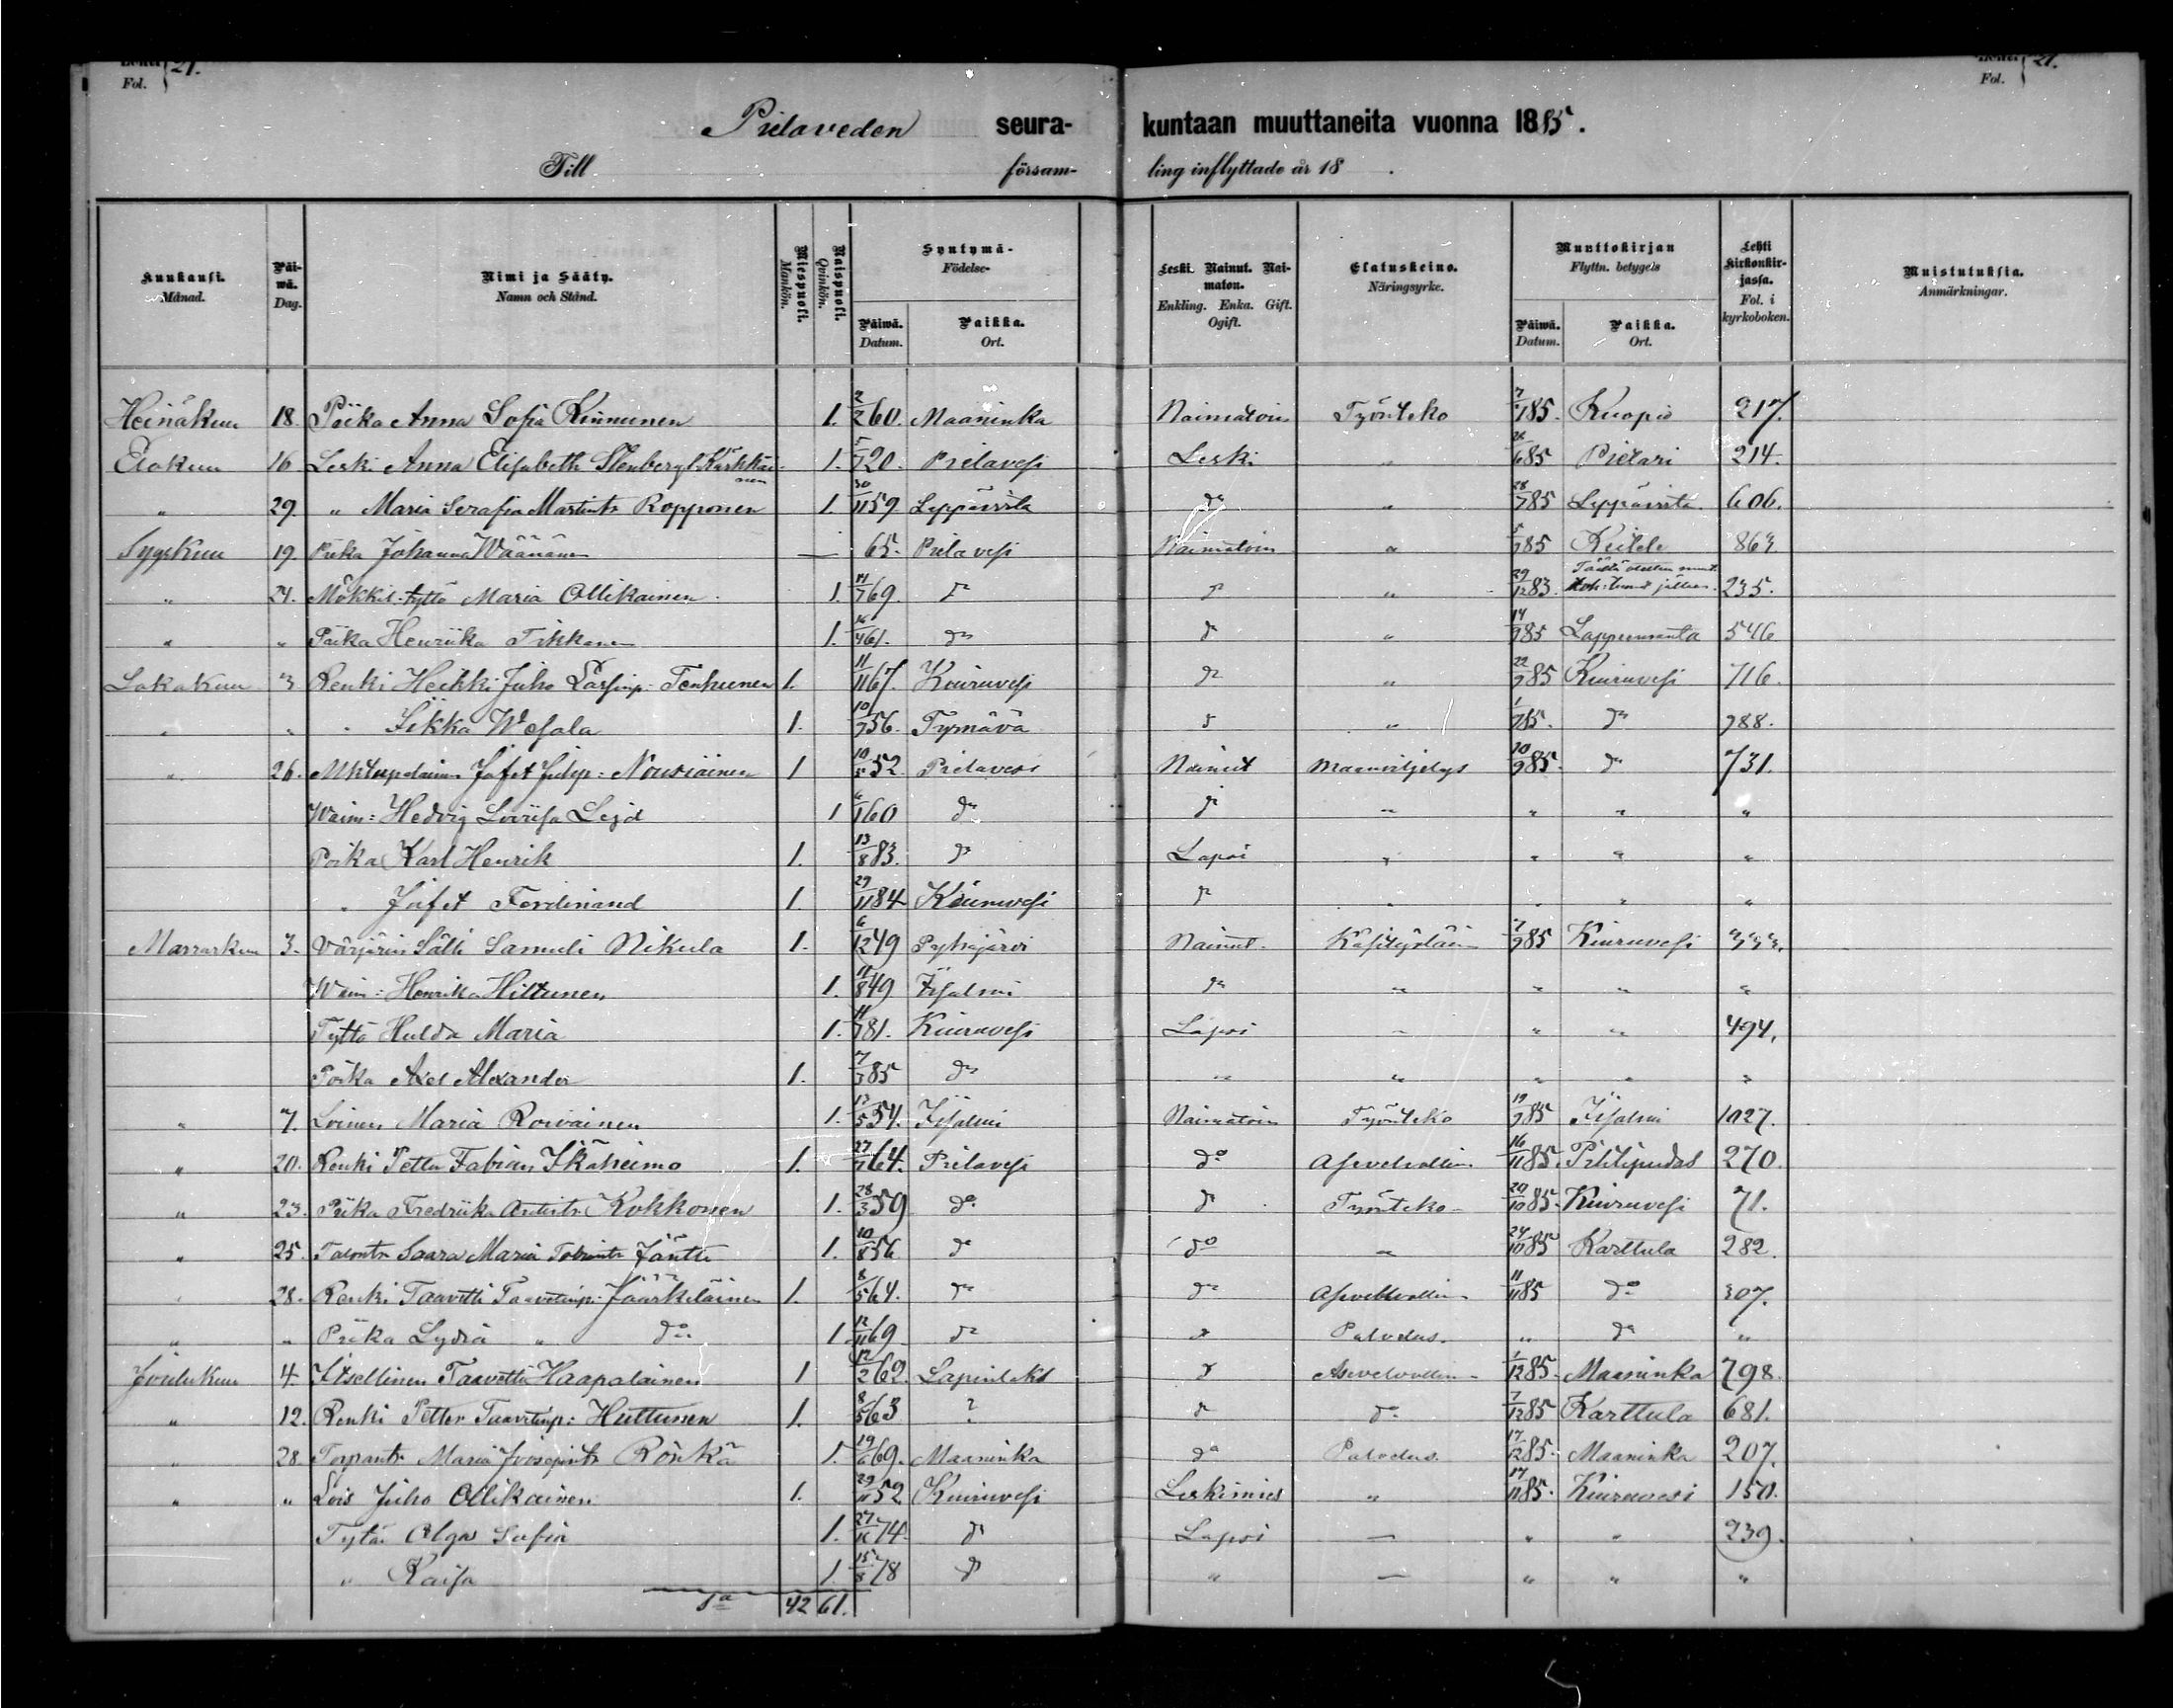 Fol. 21.
Fol. 21.
Pielaveden seura- kuntaan muuttaneita vuonna 1885.
Till församling inflyttade år 18 .
Kuukausi. Månad. Päiwä. Dag. Nimi ja Sääty. Namn och Stånd. Miespuoli. Mankön. Naispuoli. Qvinkön. Syntymä- Födelse- Päiwä. Datum. Paikka. Ort. Leski. Nainut. Naimaton. Enkling. Enka. Gift. Ogift. Elatuskeino. Näringsyrke. Muuttokirjan Flyttn. betygets Päiwä. Datum. Paikka. Ort. Lehti Kirkonkirjassa. Fol. i kyrkoboken. Muistutuksia. Anmärkningar.
Heinäkuu 18. Piika Anna Sofia Kinnunen 1. 2/2 60. Maaninka Naimatoin Työnteko 7/7 85. Kuopio 217.
Elokuu 16 Leski Anna Elisabeth Stenberg Kärkkäinen 1. 5/7 20. Pielavesi Leski " 26/6 85 Pietari 214.
" 29. " Maria Serafia Martintr Ropponen 1. 30/11 59 Leppävirta do " 28/7 85 Leppävirta 606.
Syyskuu 19. Piika Johanna Wäänänen — 65. Pielavesi Naimatoin " 5/9 85 Keitele 863
" 24. Mökkil. tyttö Maria Ollikainen 1. 14/7 69. do do " 29/12 83. 235.
" " Piika Henriika Tikkanen 1. 16/4 61. do do " 14/9 85 Lappeenranta 546
Lokakuu 3 Renki Heikki Juho Lassinp. Tenhunen 1. 11/11 67. Kiuruvesi do " 22/9 85 Kiuruvesi 716.
" " " Sikka Wesala 1. 10/9 56. Tyrnävä do " 1/9 85. do 988.
" 26. Jafet Juhop: Nousiainen 1 10/5 52. Pielavesi Nainut Maanviljelys 10/9 85. do 731.
Waim: Hedvig Loviisa Lejd 1 6/1 60 do do " " " "
Poika Karl Henrik 1. 13/8 83. do Lapsi " " " "
" Jafet Ferdinand 1. 29/11 84 Kiuruvesi do " " " "
Marraskuu 3. Värjärin Sälli Samuli Nikula 1. 6/12 49 Pyhäjärvi Nainut Käsityöläin. 7/9 85 Kiuruvesi 333.
Waim: Henrika Hiltunen 1. 11/8 49 Iisalmi do " " " "
Tyttö Hulda Maria 1. 11/7 81. Kiuruvesi Lapsi " " " 494.
Poika Axel Alexander 1. 7/3 85 do " " " " "
" 7. Loinen Maria Roivainen 1. 13/5 54. Iisalmi Naimatoin Työnteko 19/9 85 Iisalmi 1027.
" 20. Renki Petter Fabian Ikäheimo 1. 27/7 64. Pielavesi do Asevelvollin. 16/11 85. Pihtipudas 270.
" 23. Piika Fredriika Antintr. Kokkonen 1. 28/3 59 do do Työnteko 20/10 85. Kiuruvesi 71.
" 25. Talontr Saara Maria Jäntti 1. 10/8 56 do do " 24/10 85 Karttula 282.
" 28. Renki Taavetti Taavetinp: Jääskeläinen 1. 8/5 64. do do Asevelvollin 11/11 85 do 307.
" " Piika Lydia " do 1 12/11 69 do do Palvelus. " do "
Joulukuu 4. Itsellinen Taavetti Haapalainen 1 12/2 62. Lapinlaks do Asevelvollin 1/12 85. Maaninka 798.
" 12. Renki Petter Taavetinp: Huttunen 1. 8/5 63 ? do do 7/12 85 Karttula 681.
" 28 Torpantr Maria Joosepintr Rönkä 1. 19/6 69. Maaninka do Palvelus. 17/12 85. Maaninka 207.
" " Lois Juho Ollikainen 1. 29/11 52 Kiuruvesi Leskimies " 17/11 85. Kiuruvesi 150.
Tytär Olga Sofia 1. 27/10 74 do Lapsi — " " 239.
" Kaisa 1. 15/8 78 do " — " " "
Sa 42 61.